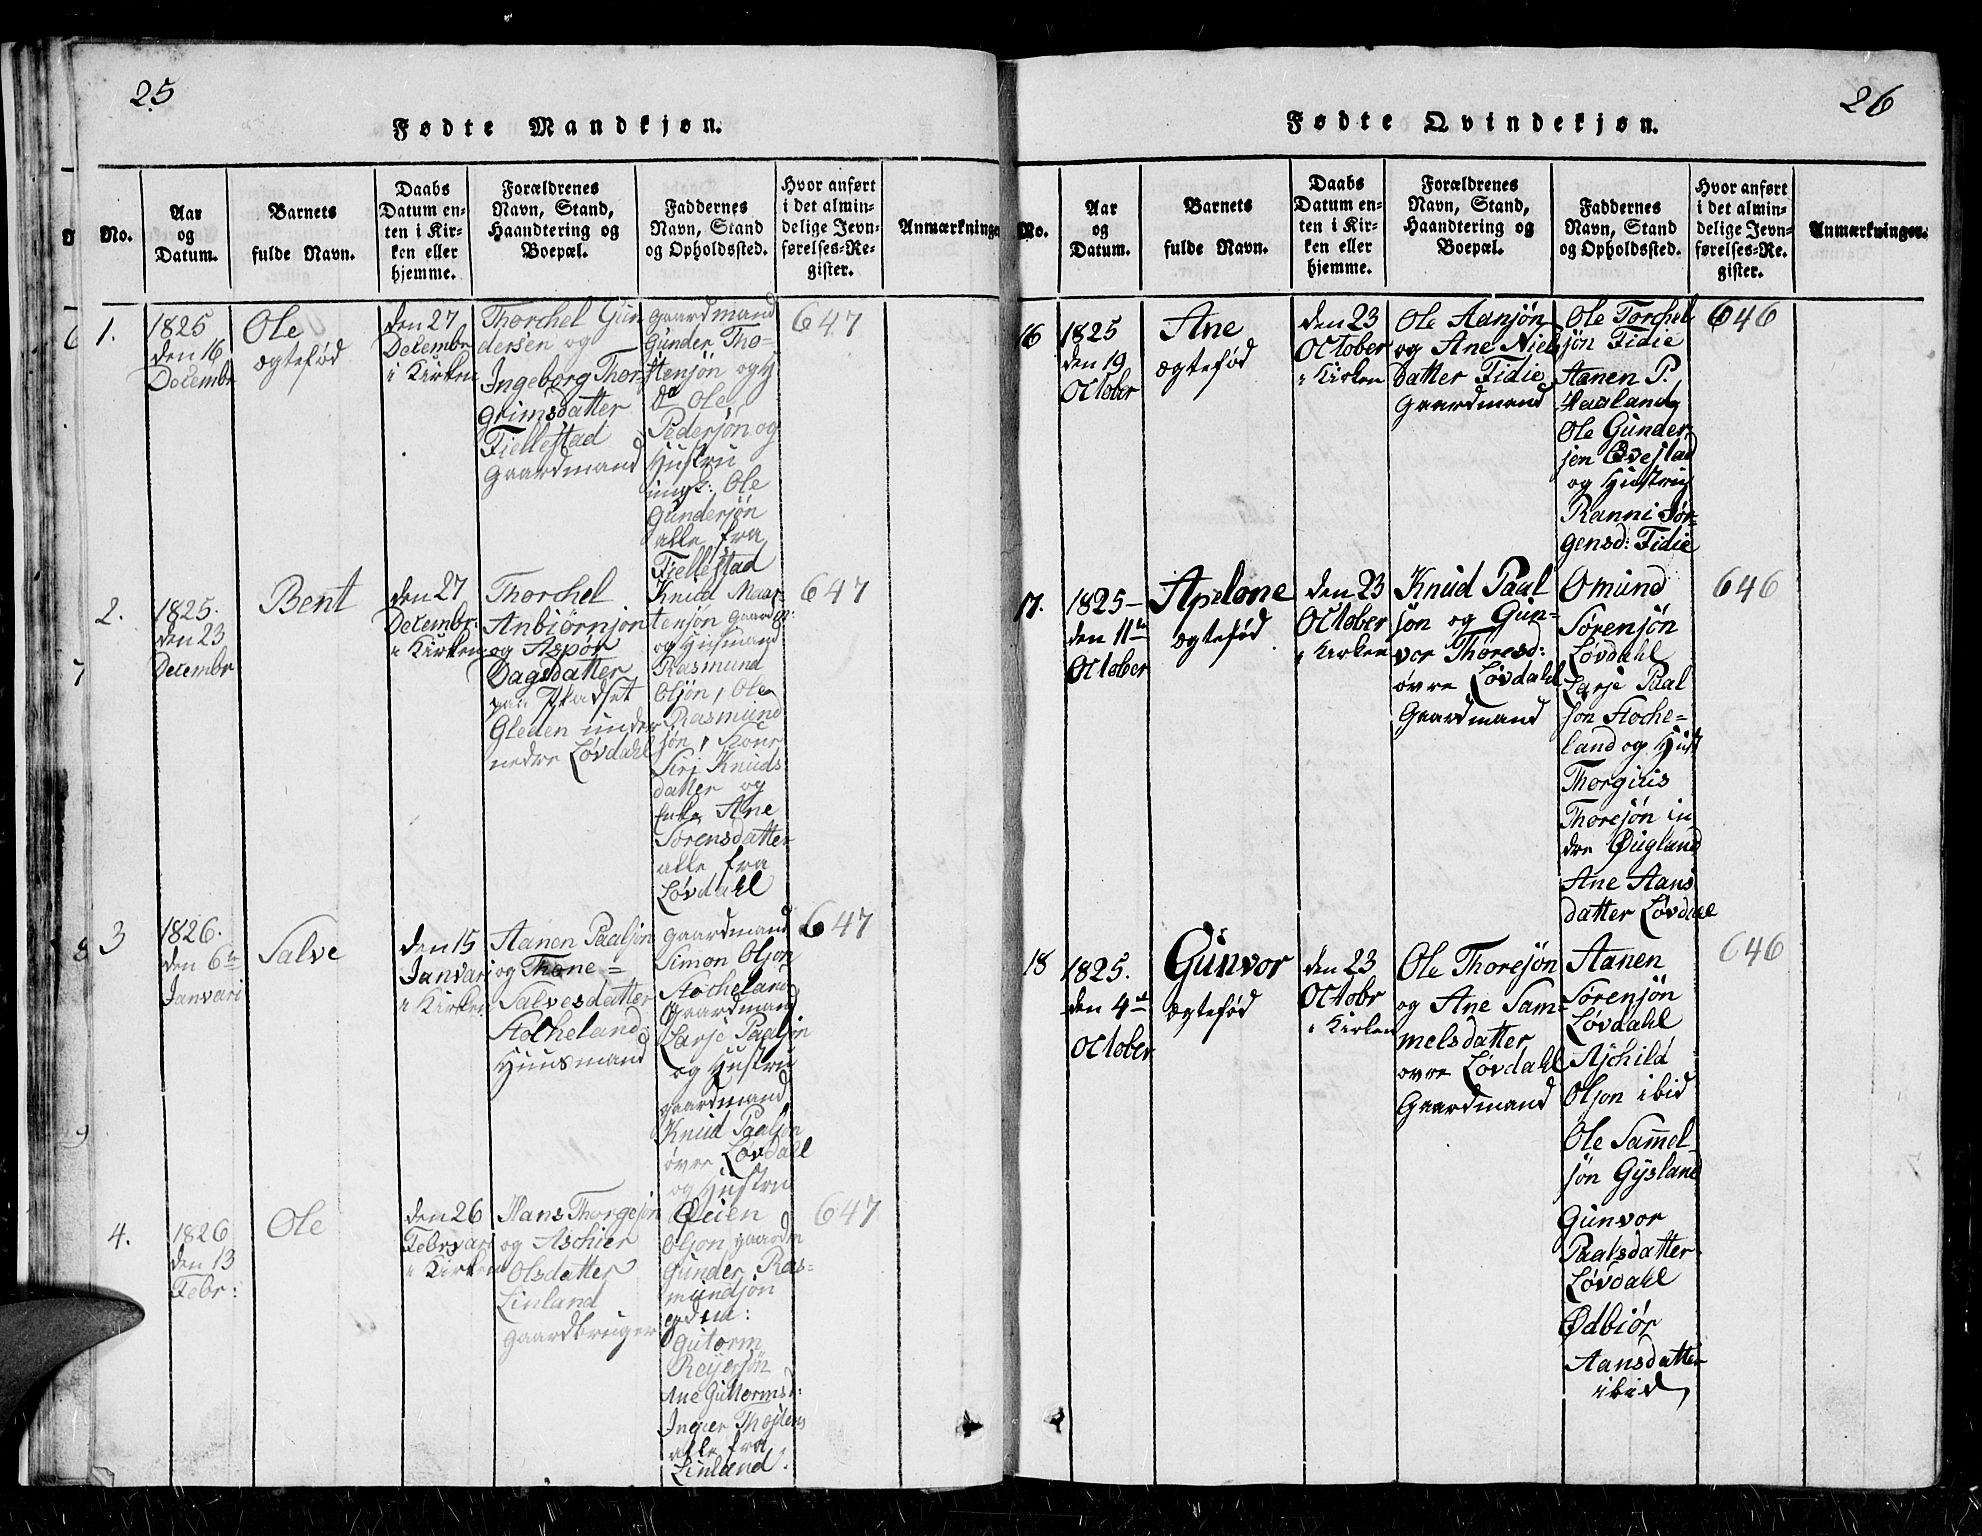 25
Fødte Mandkjøn.
No.
Aar
og
Datum.
Barnets
fulde Navn.
Daabs
Datum en-
ten i Kir-
ken eller
hjemme.
Forældrenes
Navn, Stand,
Haandtering og
Boepæl.
Faddernes
Navn, Stand
og Opholdssted.
Hvor anført
i det almin-
delige Jevn-
førelses-Re-
gister.
Anmærkninge
1.
1825
den 16
Decembr
Ole
ægtefød
den 27
Decembr
i Kirken
Thorchel Gun
dersen og
Ingeborg Thor
grimsdatter
Fiellestad
Gaardmand
Gaardmand
Gunder Tho-
stensøn og
Ole
Pedersøn og
Hustru
ungk: Ole
Gundersøn
alle fra
Fiellestad
647
2.
1825.
den 23
Decembr
Bent
den 27
Decembr
i Kirken
Thorchel
Anbiørnsøn
og Aspor
Dagsdatter
paa Pladset
Gleden under
nedre Løvdahl
Knud Maar-
tensøn Gaardm:
og Huusmand
Rasmund
Olsøn, Ole
Rasmund
søn,
Siri Knuds
datter og
Enke Ane
Sørensdatter
alle fra
Løvdahl
647
3
1826.
den 6te
Januari
Salve
den 15
Januari
i Kirken
Aanen Paalsøn
og Thone=
Salvesdatter
Stocheland
Huusmand
Gaardmand
Simon Olson
Stocheland
Gaardmand
Larse Paalsøn
og Hustru
gaardmand
Knud Paalsøn
øvre Løvdahl
og Hustru
647
4.
1826
den 13
Febr:
Ole
den 26
Februari
i Kirken
Hans Thorgesøn
og Aschier
Olsdatter
Linland
Gaardbruger
Øeien
Olson gaardm
Gunder Ras-
mundsøn
Gutorm
Reijersøn
Ane Guttormsd:
Inger Thostens
alle fra
Linland.
647
26
Fødte Qvindekjøn.
No.
Aar
og
Datum.
Barnets
fulde Navn.
Daabs
Datum en-
ten i Kir-
ken eller
hjemme.
Forældrenes
Navn, Stand,
Haandtering og
Boepæl.
Faddernes
Navn, Stand
og Opholdssted.
Hvor anført
i det almin-
delige Jevn-
førelses-Re-
gister.
Anmærkninger.
16
1825
den 19
October
Ane
ægtefød
den 23
October
i Kirken
Ole Aansøn
og Ane Niels
datter Fidie
Gaardmand
Ole Torchel
søn Fidie
Aanen P.
Haaland
Ole Gunder
sen Qvestad
og Hustru
Ranni Jør-
gensd: Fidie
646
17.
1825–
den 11te
October
Apelone
ægtefød
den 23
October
i Kirken
Knud Paal
søn og Gun-
vor Thoresd:
øvre Løvdahl
Gaardmand
Omund
Sørensøn
Løvdahl
Larse Paal
søn Stoche=
land og Hust
Thorgiuis
Thoresøn in
dre Øugland
Ane Aans
datter Løvdahl
646
18
1825.
den 4de
October
Gunvor
ægtefød
den 23
Octobr
i Kirken
Ole Thoresøn
og Ane Sam-
melsdatter
øvre Løvdahl
Gaardmand
Aanen
Sørensøn
Løvdahl
Aschild
Olson ibid
Ole Sam̄el
søn Gysland
Gunvor
Paalsdatter
Løvdahl
Ødbiør
Aansdatter
ibid
646